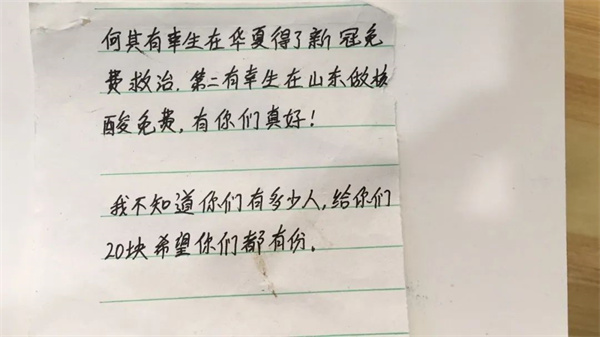 何其有幸生在华夏得了新冠免
费救治,第二有幸生在山东做核
酸免费,有你们真好!
我不知道你们有多少人,给你们
20块希望你们都有份。